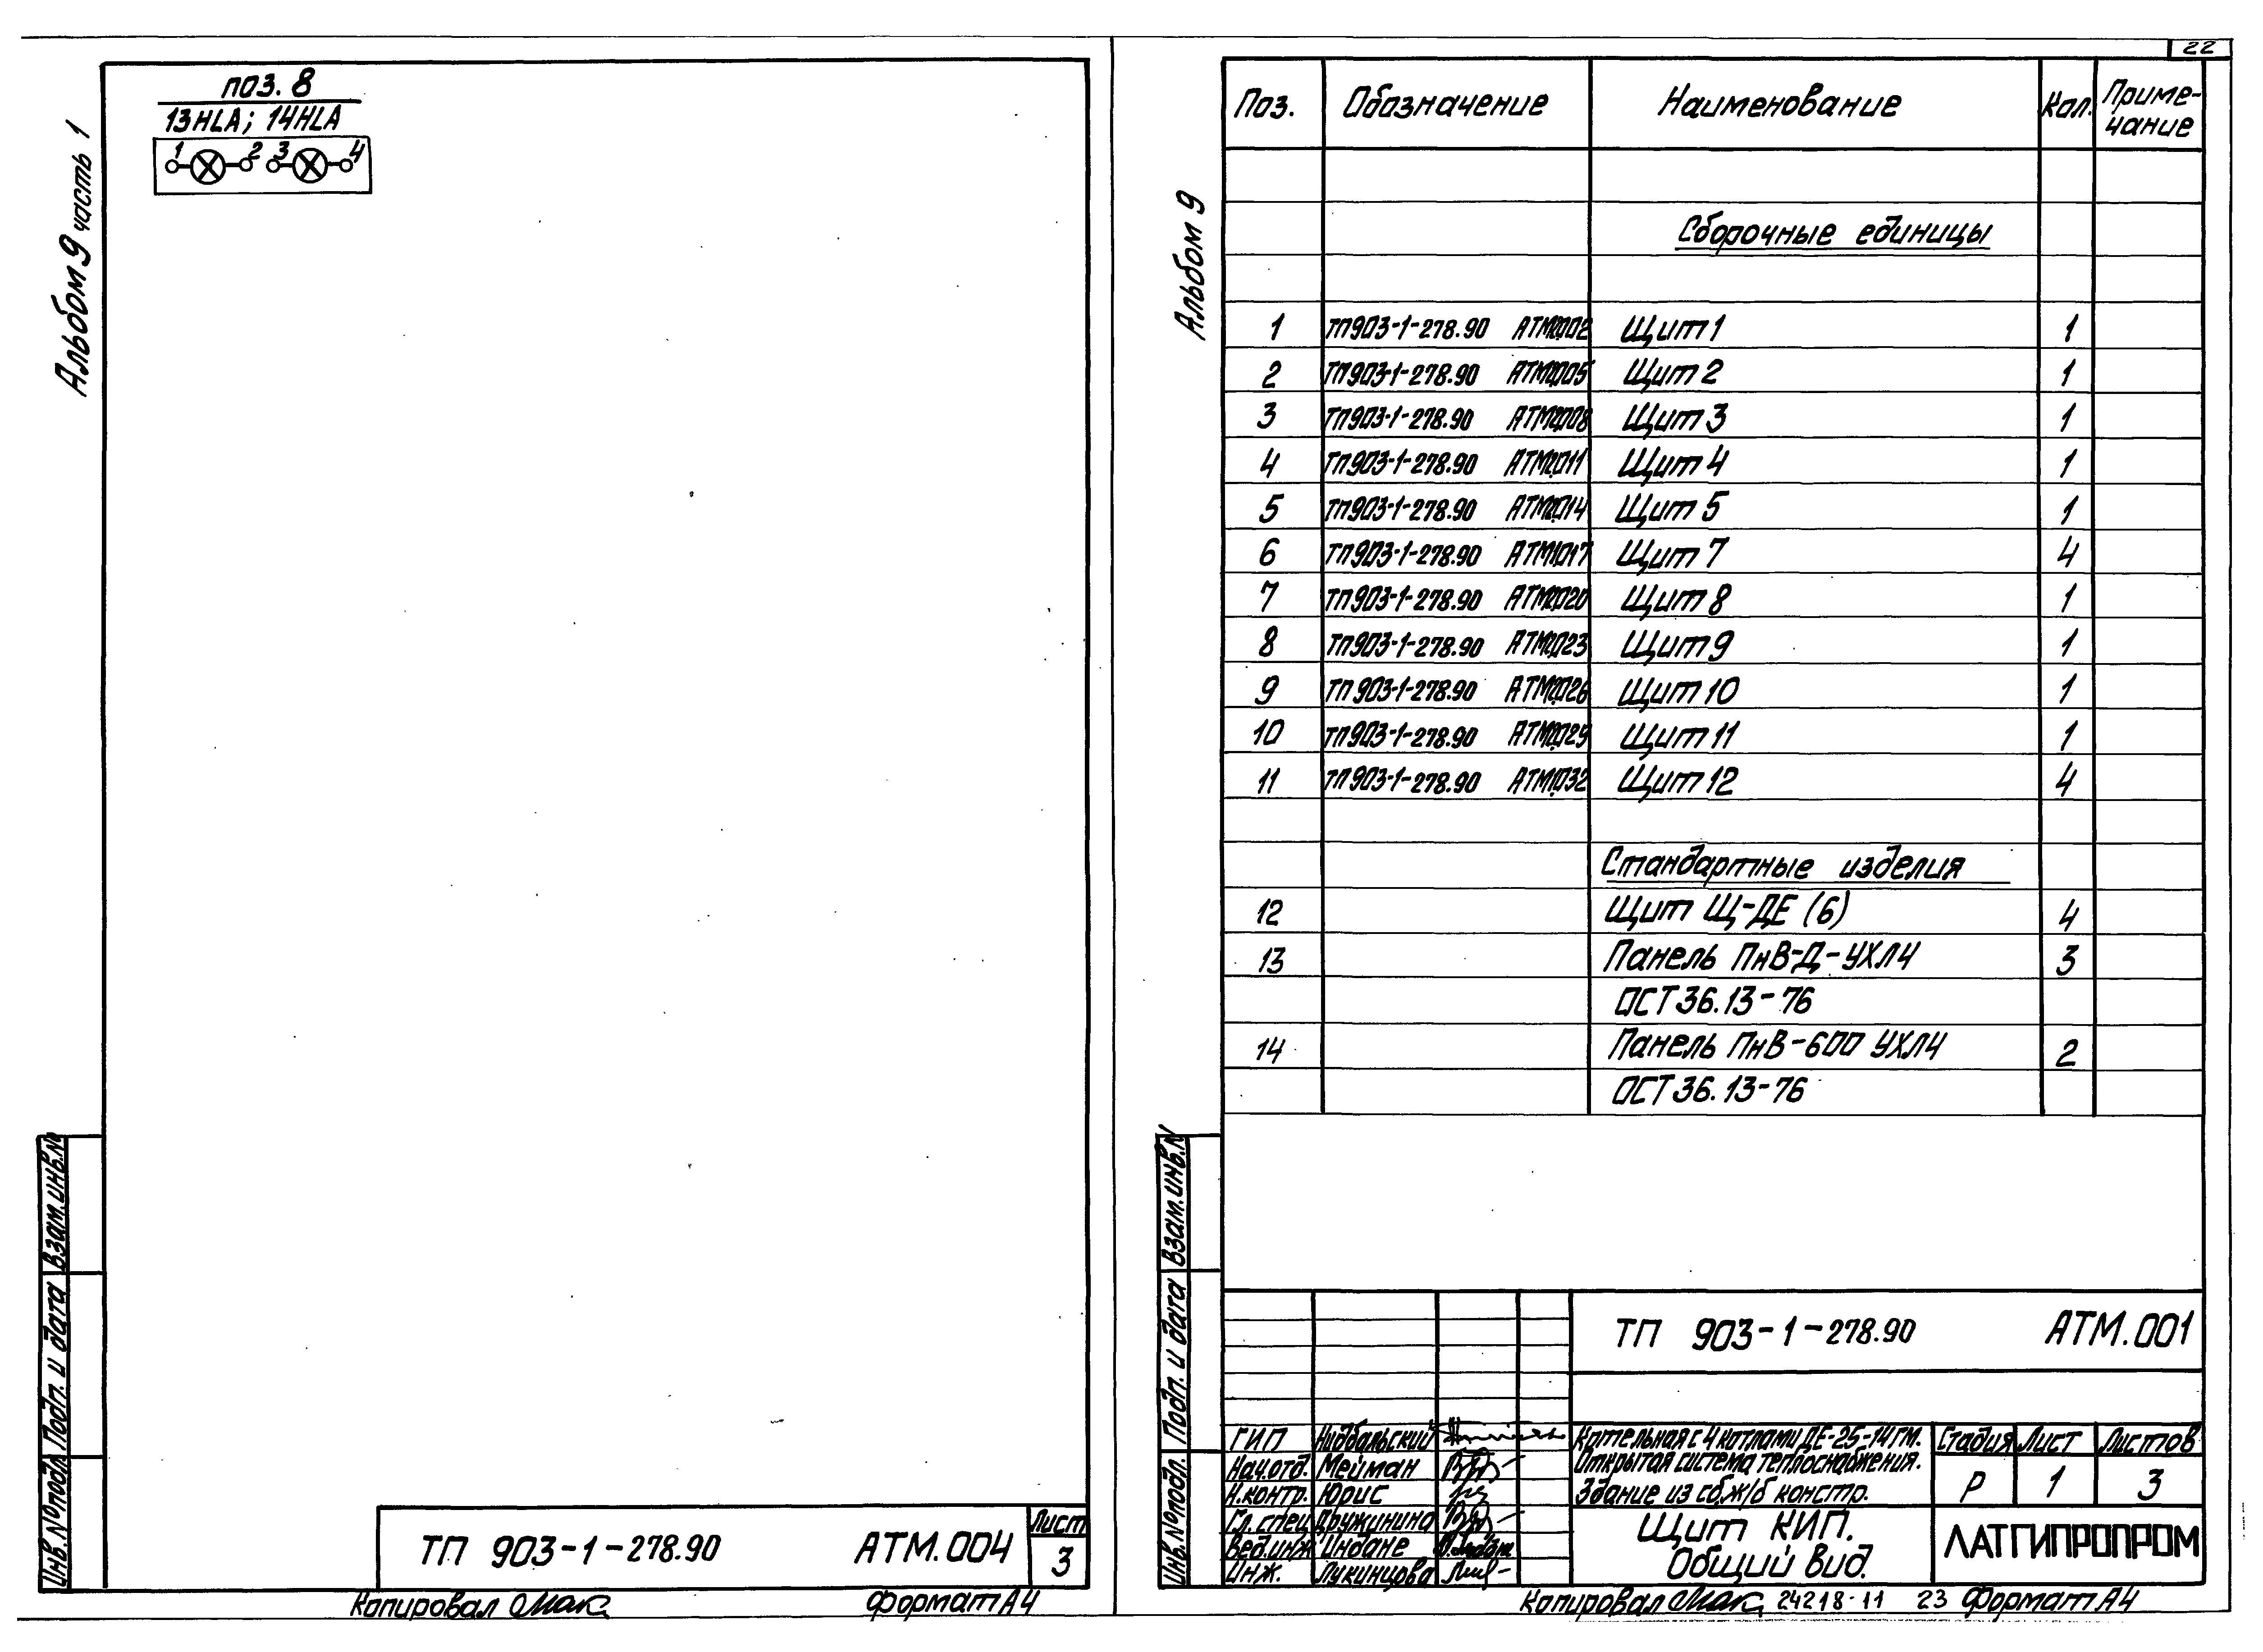 Альбом 9 часть 1
поз. 8
13HLA; 14HLA
1 2 3 4
Взам.инв.№
Подп. и дата
Инв.№ подл.
ТП 903-1-278.90 АТМ.004
Лист
3
Копировал
Формат А4
22
Альбом 9
Поз. Обозначение Наименование Кол. Приме-
чание
Сборочные единицы
1 ТП903-1-278.90 Щит 1 1
2 ТП903-1-278.90 Щит 2 1
3 ТП903-1-278.90 Щит 3 1
4 ТП903-1-278.90 Щит 4 1
5 ТП903-1-278.90 Щит 5 1
6 ТП903-1-278.90 Щит 7 4
7 ТП903-1-278.90 Щит 8 1
8 ТП903-1-278.90 Щит 9 1
9 ТП903-1-278.90 Щит 10 1
10 ТП903-1-278.90 Щит 11 1
11 ТП903-1-278.90 Щит 12 4
Стандартные изделия
12 Щит Щ-ДЕ (6) 4
13 Панель ПнВ-Д-УХЛ4 3
ОСТ 36.13-76
14 Панель ПнВ-600 УХЛ4 2
ОСТ 36.13-76
Взам.инв.№
Подп. и дата
Инв.№ подл.
ТП 903-1-278.90 АТМ.001
ГИП
Нач.отд. Мейман
Н.контр. Юрис
Гл. спец. Дружинина
Вед.инж. Индане
Инж. Лукинцова
Котельная с 4 котлами ДЕ-25-14ГМ.
Открытая система теплоснабжения.
Здание из сб.ж/б констр.
Стадия Лист Листов
Р 1 3
Щит КИП.
Общий вид.
ЛАТГИПРОПРОМ
Копировал 24218-11 23 Формат А4